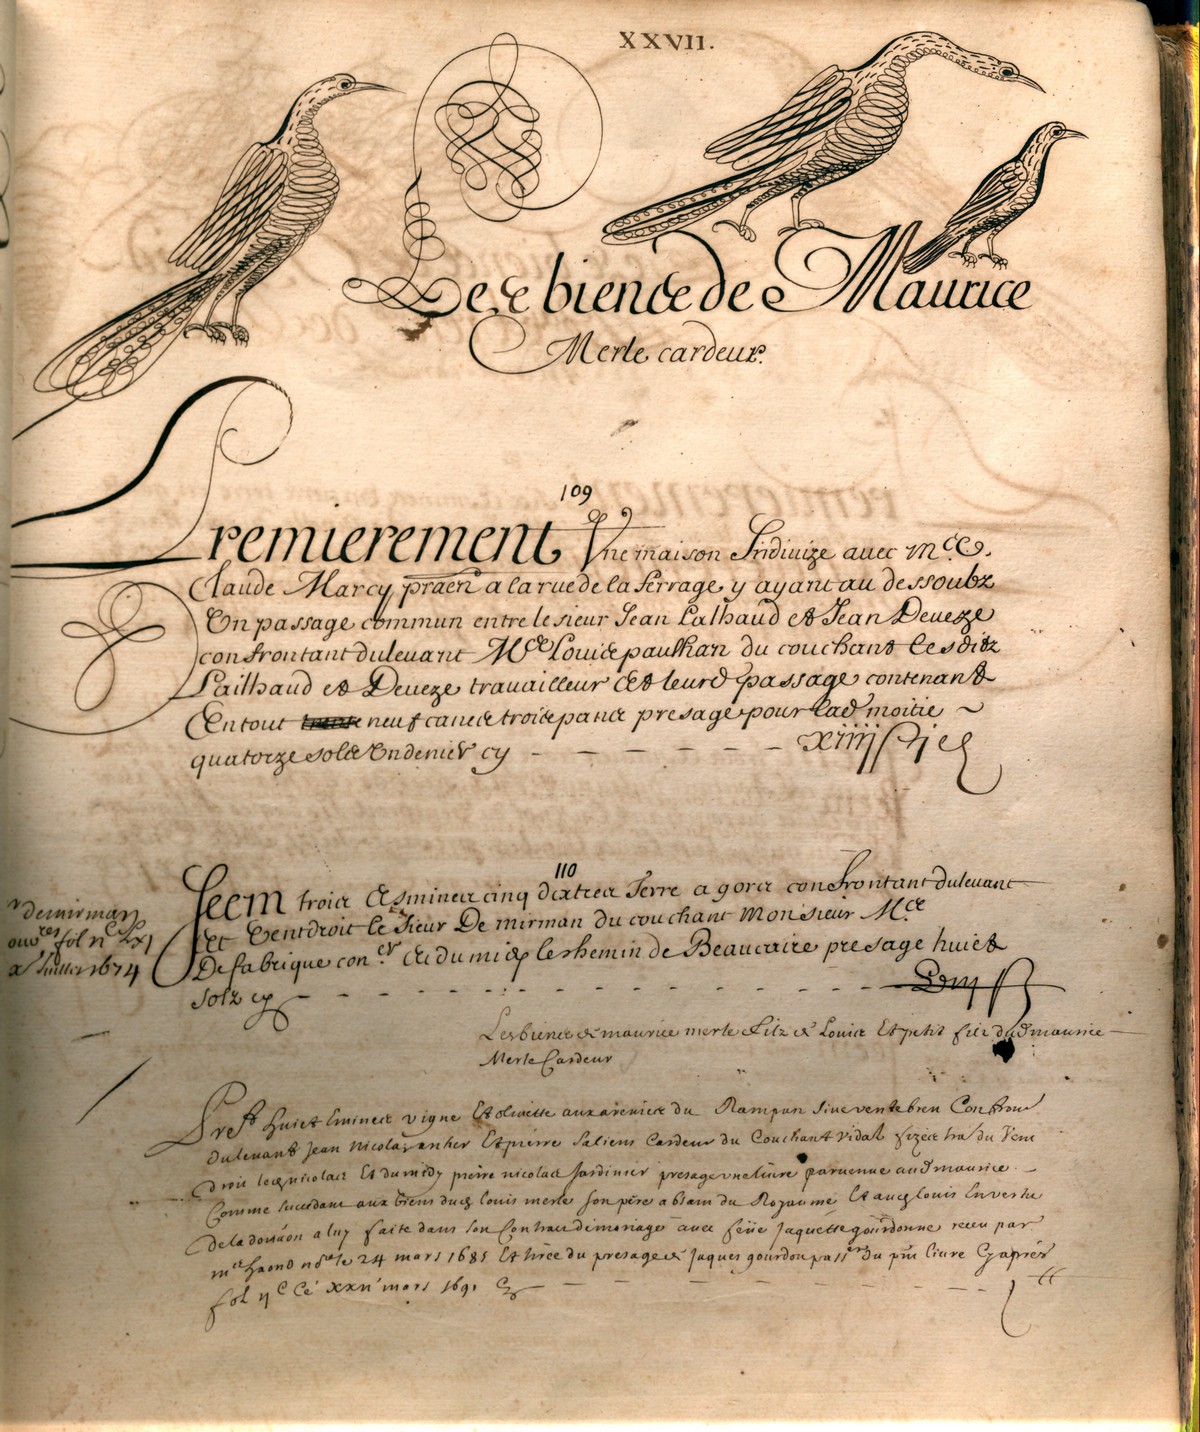 XXVII.
Les biens de Maurice
Merle cardeur.
109
Premierement Vne maison Jndiuize auec Mre.
Claude Marcy praen a la rue de la ferrage y ayant au dessoubz
Vn passage commun entre le sieur Jean Lalhaud et Jean Deueze
confrontant du leuant Mre Louis paulhan du couchant lesditz
Lailhaud et Deueze trauailleur et leurs passage contenant
En tout trente neuf canes trois pans presage pour lad moitie ~
quatorze solz Vn denier cy - - - - - - xiiij s j d
110
Jtem trois Esmines cinq dextres Terre a gors confrontant du leuant
Et Vent droit le Sieur De mirman du couchant Monsieur Mre
De fabrique coner Et du midy le chemin de Beaucaire presage huict
solz cy - - - - - - viij s
demirman
ouures fol nc Lxj
x Juillet 1674
Les biens de maurice merle filz de Louis Et petit filz dud maurice
Merle Cardeur
Pret huict Emines vigne Et oliuette aux arenies du Rampan siue ventebren Confron
du leuant Jean Nicolas Et pierre Saliens Cardeur du Couchant vidal du Vent
droit les nicolas Et du midy pierre nicolas Jardinier presage vne liure paruenue aud maurice
Comme succedant aux biens dud louis merle son pere absant du Royaume Et aud louis En vertu
de la donaon a luy faite dans son Contract de mariage auec feue Jaquette gourdonne receu par
me haond nore le 24 mars 1685 Et tiree du presage de Jaques gourdon du pnt liure Cy apres
fol ijc xxii mars 1691 Cy